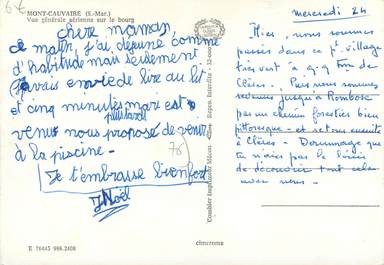 MONT-CAUVAIRE (S.-Mar.)
Vue générale aérienne sur le bourg
chère maman,
ce matin, j'ai dejeuné comme
d'habitude mais seulement
j'avais envie de lire au lit
et cinq minutes
plus tard
est
venu nous proposé de venir
à la piscine -
Je t'embrasse bien fort
Noël
78
E 76445 986.2408
Combier Imprimeur Mâcon
cimcrome
mercredi 24
Hier, nous sommes
passés dans ce pt village
très vert à q.q km de
Clères. Puis nous sommes
revenus jusqu'à
par un chemin forestier bien
pittoresque - et retour ensuite
à Clères - Dommage que
tu n'aies pas le loisir
de découvrir tout cela
avec nous -